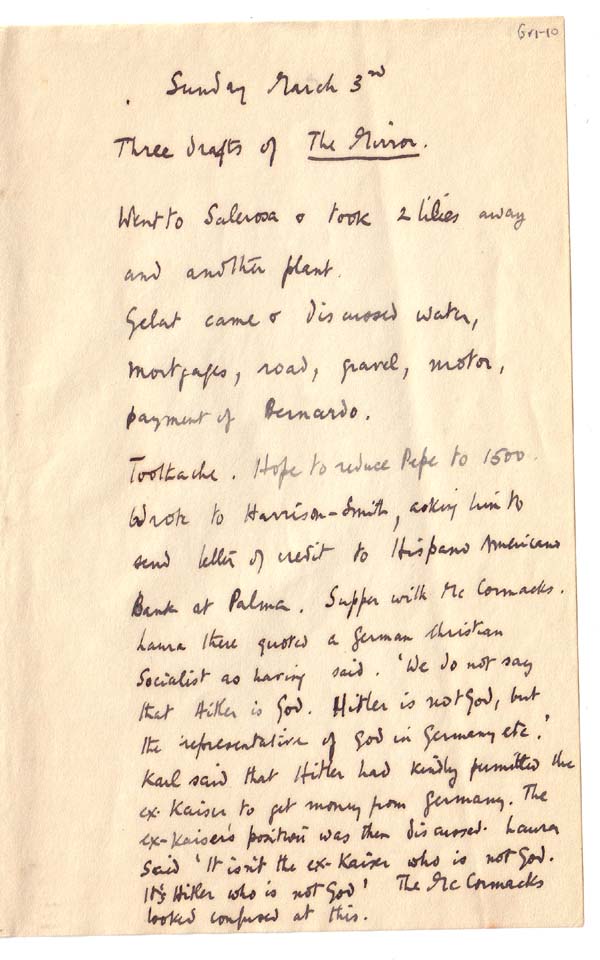 Gv1-10
Sunday March 3rd
Three drafts of The Mirror.
Went to Salerosa & took 2 lilies away
and another plant.
Gelat came & discussed water,
mortgages, road, gravel, motor,
payment of Bernardo.
Toothache. Hope to reduce Pepe to 1500.
Wrote to Harrison-Smith, asking him to
send letter of credit to Hispano Americano
Bank at Palma. Supper with McCormacks.
Laura there quoted a German Christian
Socialist as having said. 'We do not say
that Hitler is God. Hitler is not God, but
the representative of God in Germany etc.'
Karl said that Hitler had kindly permitted the
ex-Kaiser to get money from Germany. The
ex-Kaiser's position was then discussed. Laura
said 'It isn't the ex-Kaiser who is not God.
It's Hitler who is not God' The McCormacks
looked confused at this.